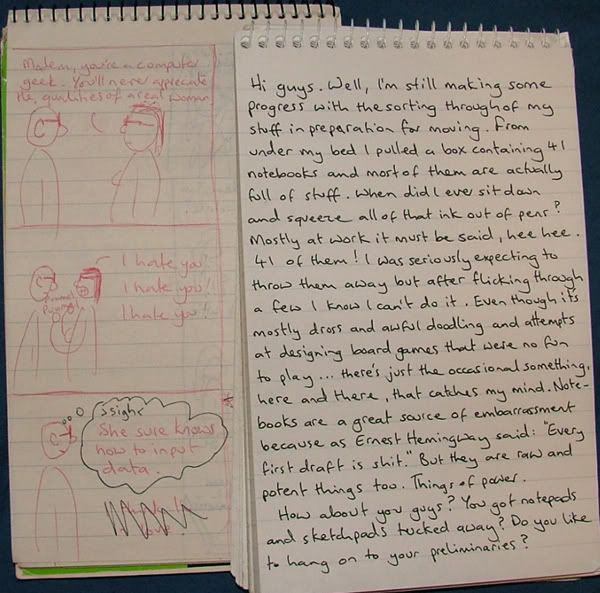 Malcom, you're a computer
geek. You'll never appreciate
the qualities of a real woman
I hate you!
I hate you!
I hate you!
Pummel
Pummel
ssighs
She sure knows
how to input
data.
Hi guys. Well, I'm still making some
progress with the sorting through of my
stuff in preparation for moving. From
under my bed I pulled a box containing 41
notebooks and most of them are actually
full of stuff. When did I ever sit down
and squeeze all of that ink out of pens?
Mostly at work it must be said, hee hee.
41 of them! I was seriously expecting to
throw them away but after flicking through
a few I know I can't do it. Even though it's
mostly dross and awful doodling and attempts
at designing board games that were no fun
to play... there's just the occasional something,
here and there, that catches my mind. Note-
books are a great source of embarrassment
because as Ernest Hemingway said: "Every
first draft is shit." But they are raw and
potent things too. Things of power.
How about you guys? You got notepads
and sketchpads tucked away? Do you like
to hang on to your preliminaries?